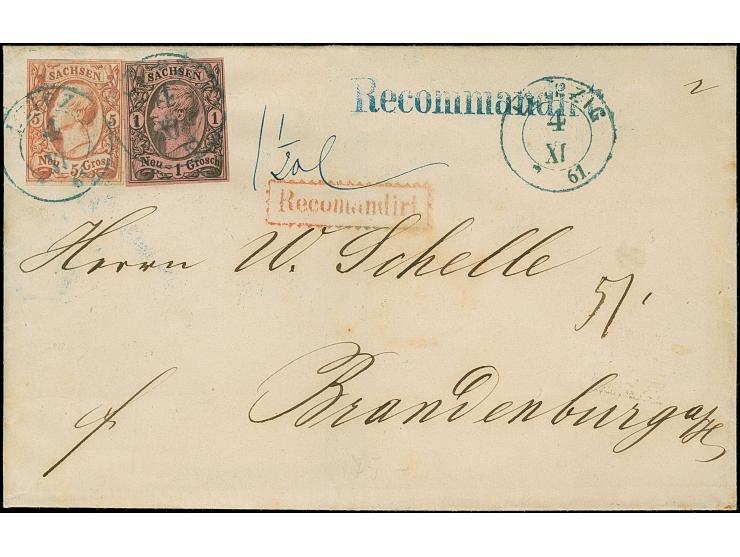 SACHSEN
5 5
Neu 5 Grosch
SACHSEN
1 1
Neu 1 Grosch
Recommandirt
ZIG
4
XI
61.
Recomandirt
Herrn W. Schelle
5/
f Brandenburg a/H
75